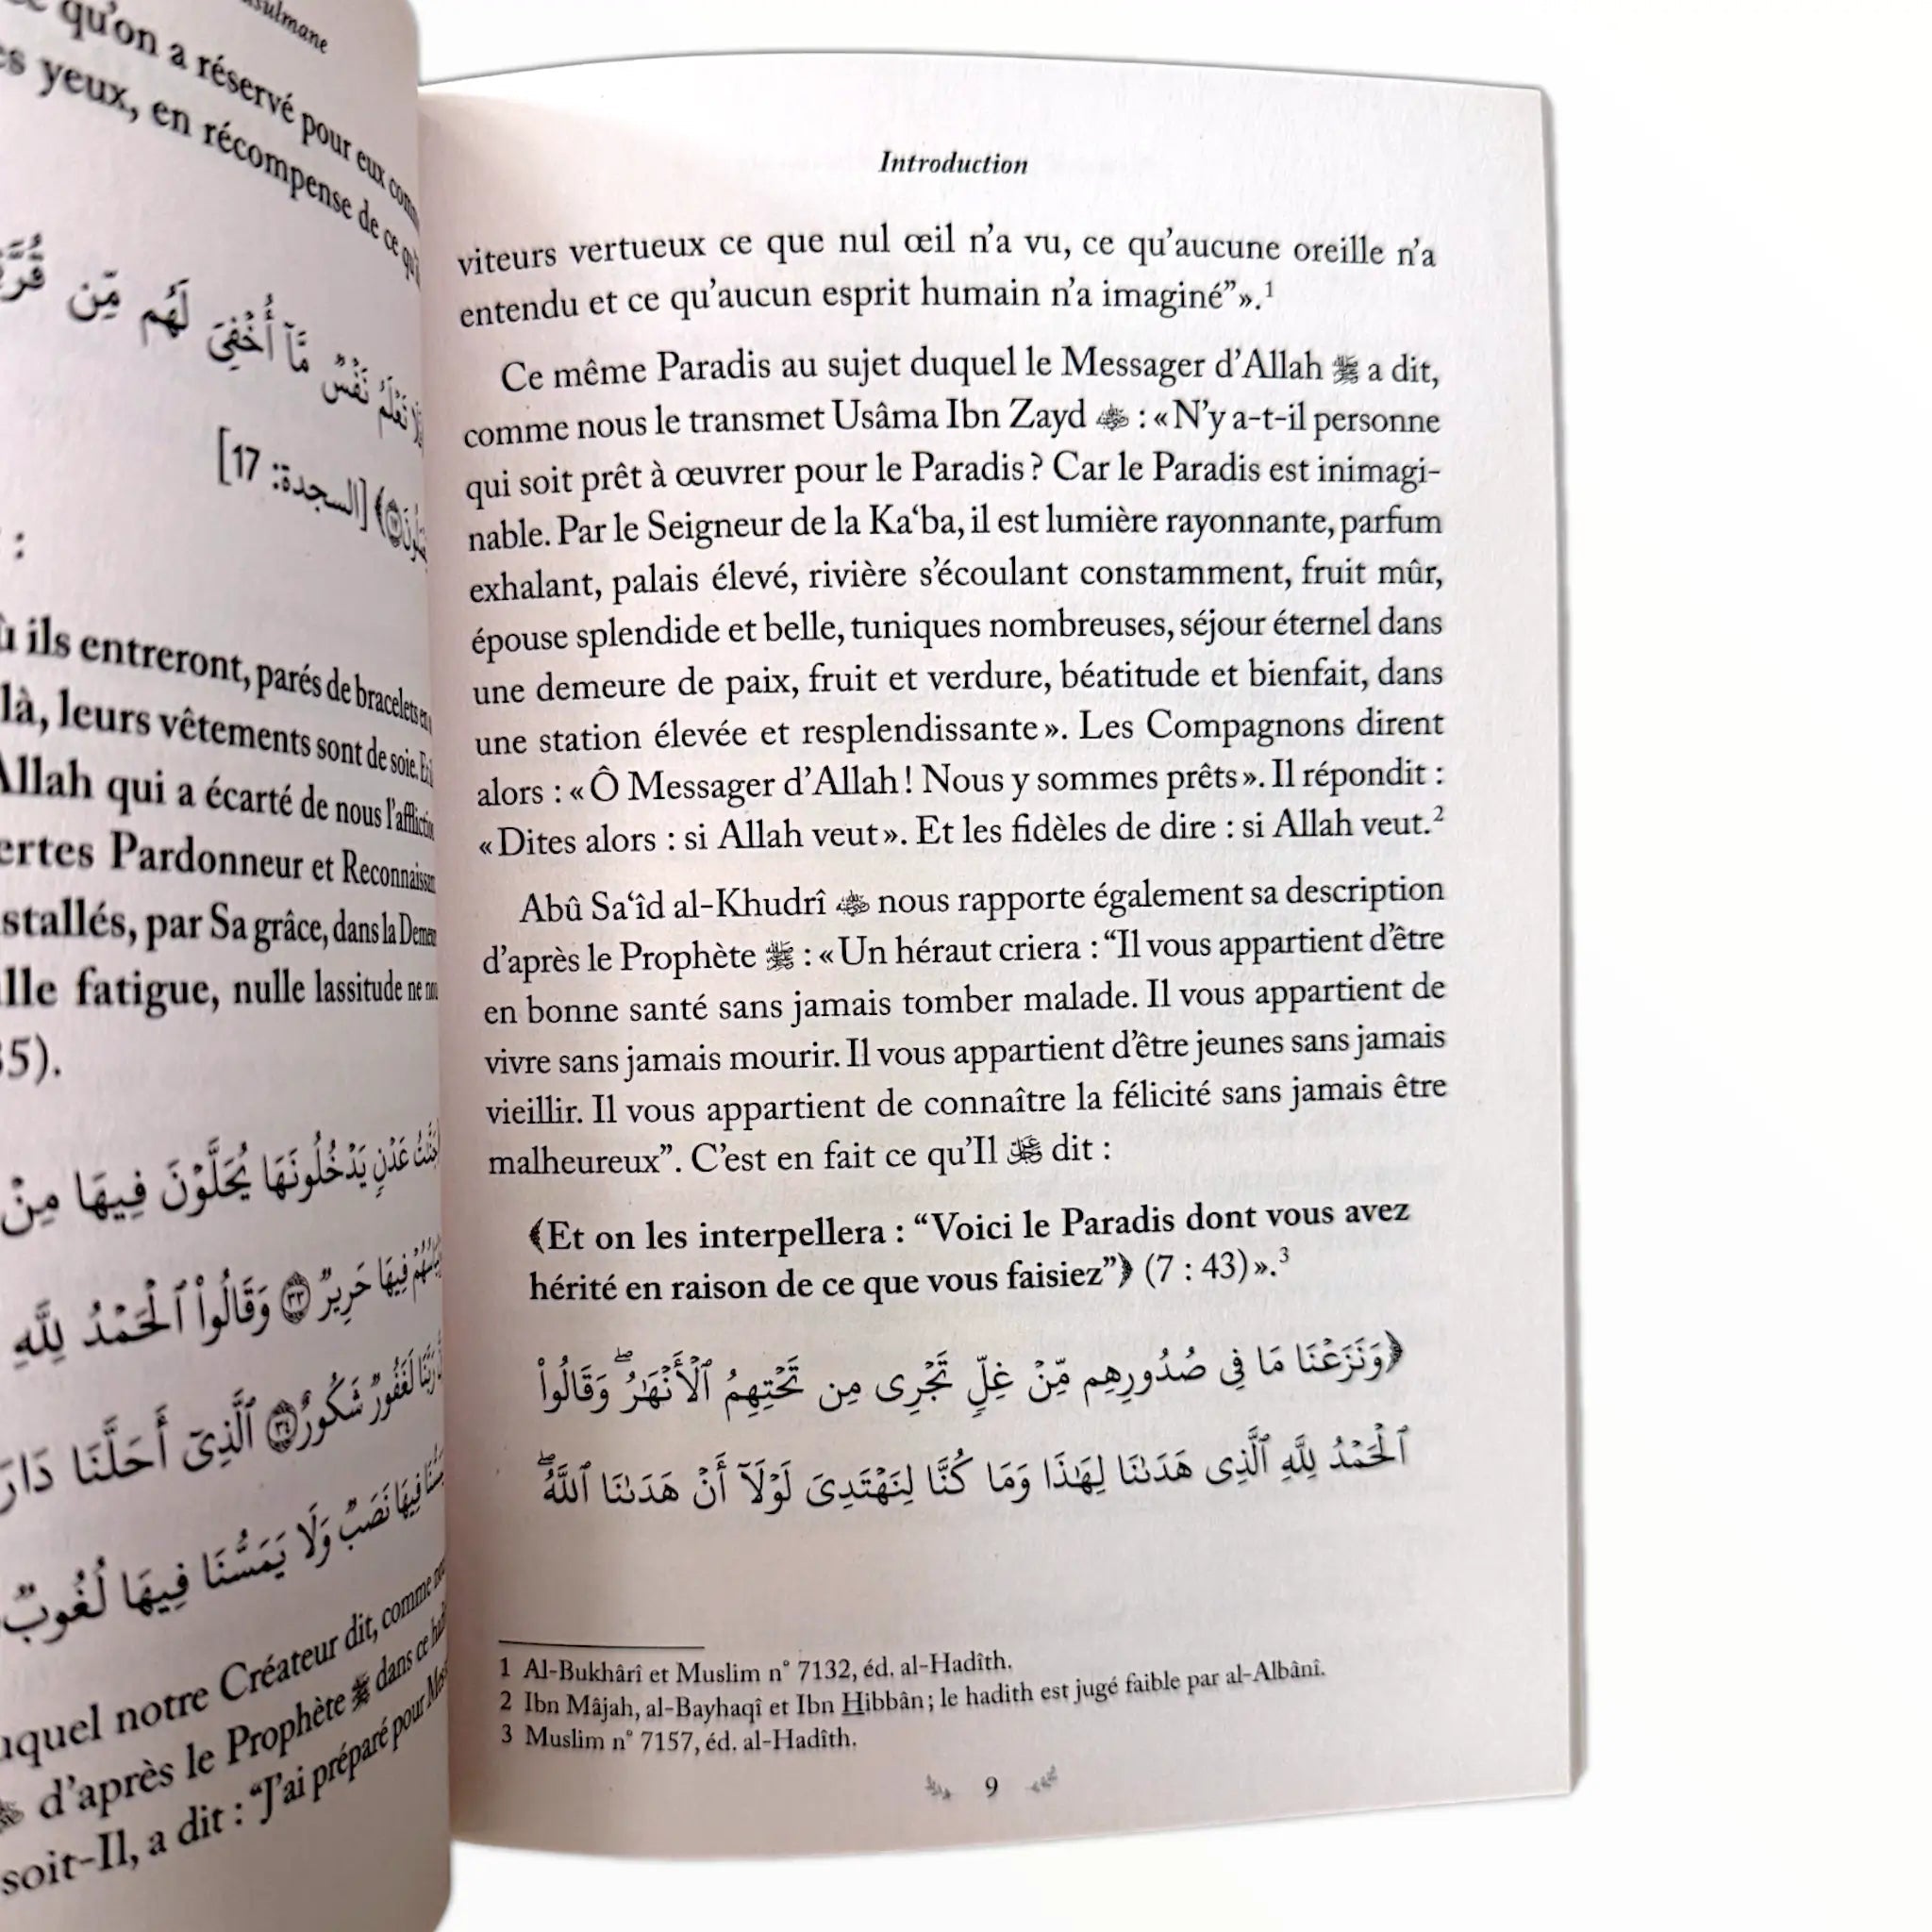 qu'on a réservé pour eux
yeux, en récompense de ce
مَّآ أُخْفِىَ لَهُم مِّن
نَفْسٌ
[السجدة: 17]
:
ils entreront, parés de bracelets
là, leurs vêtements sont de soie.
Allah qui a écarté de nous
Pardonneur et Reconnaissant
par Sa grâce, dans la
fatigue, nulle lassitude ne
35).
عَدْنٍ يَدْخُلُونَهَا يُحَلَّوْنَ فِيهَا مِنْ
فِيهَا حَرِيرٌ ۝٣٣ وَقَالُوا۟ ٱلْحَمْدُ لِلَّهِ
لَغَفُورٌ شَكُورٌ ۝٣٤ ٱلَّذِىٓ أَحَلَّنَا دَارَ
فِيهَا نَصَبٌ وَلَا يَمَسُّنَا فِيهَا لُغُوبٌ
notre Créateur dit, comme
d'après le Prophète ﷺ dans ce
soit-Il, a dit : “J'ai préparé pour
Introduction
viteurs vertueux ce que nul œil n'a vu, ce qu'aucune oreille n'a
entendu et ce qu'aucun esprit humain n'a imaginé”».¹
Ce même Paradis au sujet duquel le Messager d'Allah ﷺ a dit,
comme nous le transmet Usâma Ibn Zayd : «N'y a-t-il personne
qui soit prêt à œuvrer pour le Paradis? Car le Paradis est inimagi-
nable. Par le Seigneur de la Ka‘ba, il est lumière rayonnante, parfum
exhalant, palais élevé, rivière s'écoulant constamment, fruit mûr,
épouse splendide et belle, tuniques nombreuses, séjour éternel dans
une demeure de paix, fruit et verdure, béatitude et bienfait, dans
une station élevée et resplendissante». Les Compagnons dirent
alors : «Ô Messager d'Allah! Nous y sommes prêts». Il répondit :
«Dites alors : si Allah veut». Et les fidèles de dire : si Allah veut.²
Abû Sa‘îd al-Khudrî nous rapporte également sa description
d'après le Prophète ﷺ : «Un héraut criera : “Il vous appartient d'être
en bonne santé sans jamais tomber malade. Il vous appartient de
vivre sans jamais mourir. Il vous appartient d'être jeunes sans jamais
vieillir. Il vous appartient de connaître la félicité sans jamais être
malheureux”. C'est en fait ce qu'Il dit :
﴾Et on les interpellera : “Voici le Paradis dont vous avez
hérité en raison de ce que vous faisiez”﴿ (7 : 43)».³
﴿وَنَزَعْنَا مَا فِى صُدُورِهِم مِّنْ غِلٍّ تَجْرِى مِن تَحْتِهِمُ ٱلْأَنْهَٰرُ ۖ وَقَالُوا۟
ٱلْحَمْدُ لِلَّهِ ٱلَّذِى هَدَىٰنَا لِهَٰذَا وَمَا كُنَّا لِنَهْتَدِىَ لَوْلَآ أَنْ هَدَىٰنَا ٱللَّهُ ۖ
1 Al-Bukhârî et Muslim n° 7132, éd. al-Hadîth.
2 Ibn Mâjah, al-Bayhaqî et Ibn Hibbân; le hadith est jugé faible par al-Albânî.
3 Muslim n° 7157, éd. al-Hadîth.
9